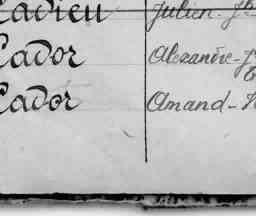 Cadieu Julien-
Cador Alexandre-
Cador Amand-